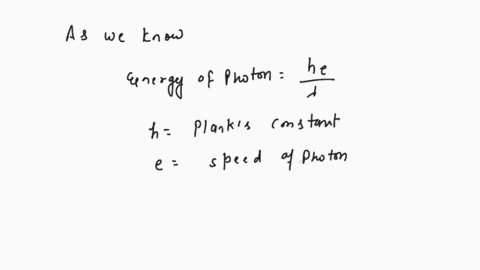 As we know
Energy of Photon = he/λ
h = Plank's constant
e = speed of Photon